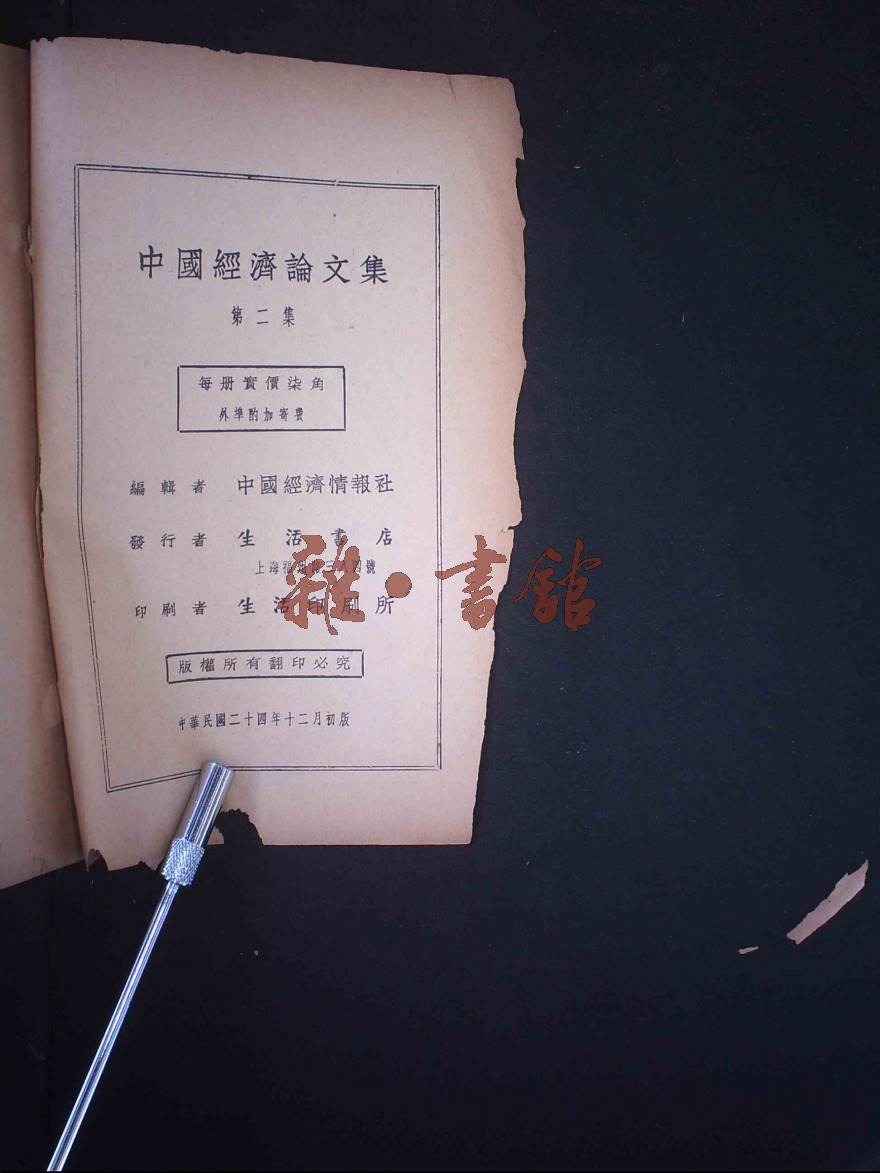 中國經濟論文集
第二集
每册實價柒角
外埠酌加寄費
編輯者 中國經濟情報社
發行者 生活書店
上海福州路三八四號
印刷者 生活印刷所
版權所有翻印必究
中華民國二十四年十二月初版
雜·書館